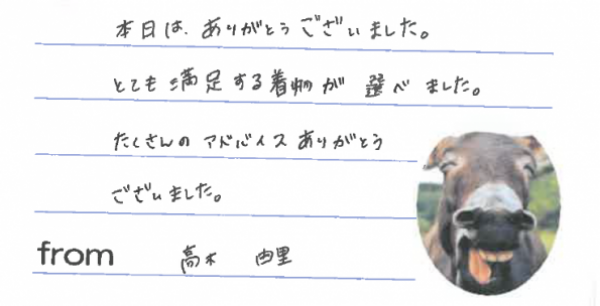 本日は、ありがとうございました。
とても満足する着物が 選べました。
たくさんの アドバイスありがとう
ございました。
from 高木 由里